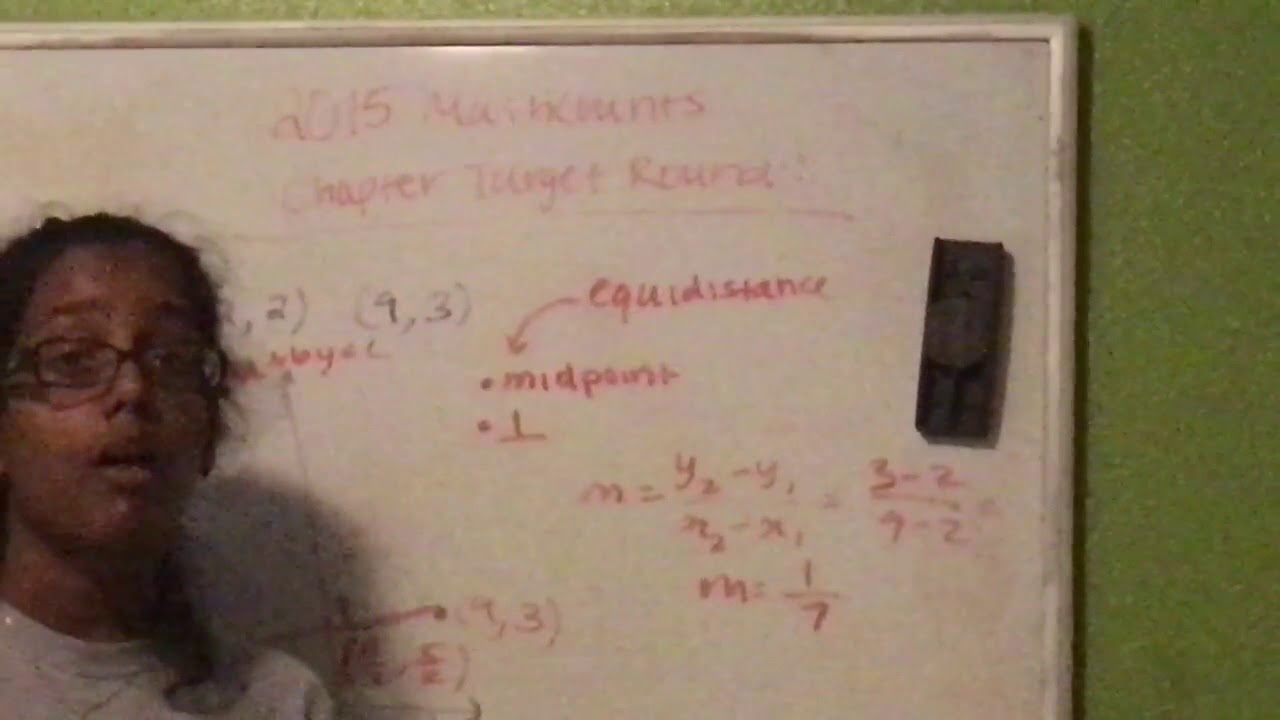 2015 Mathcounts
Chapter Target Round
, 2) (9,3)
equidistance
• midpoint
• ⊥
m = y₂ - y₁ / x₂ - x₁ = 3-2 / 9-2 =
m = 1/7
(9,3)